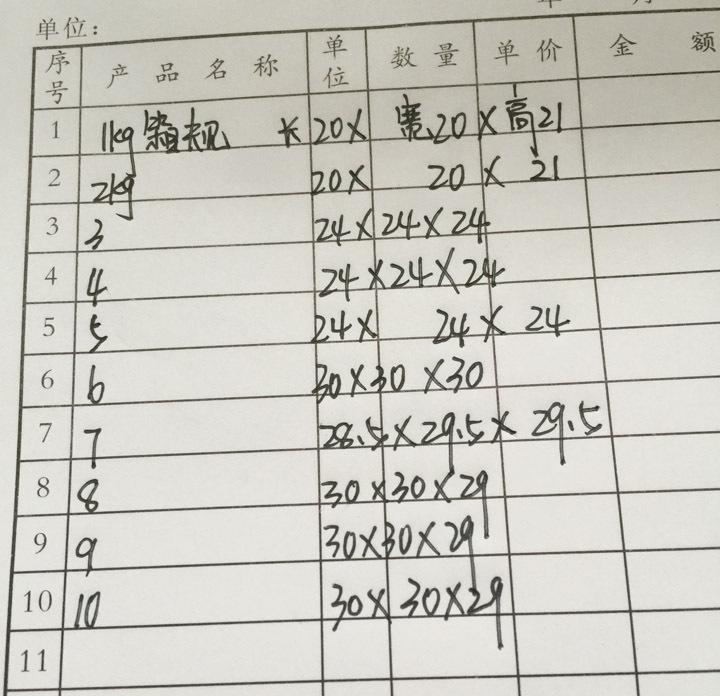 单位：
序号 产品名称 单位 数量 单价 金额
1 1kg箱规 长20X 宽20X高21
2 2kg 20X 20X 21
3 3 24X24X24
4 4 24X24X24
5 5 24X 24X 24
6 6 30X30X30
7 7 28.5X29.5X29.5
8 8 30X30X29
9 9 30X30X29
10 10 30X30X29
11